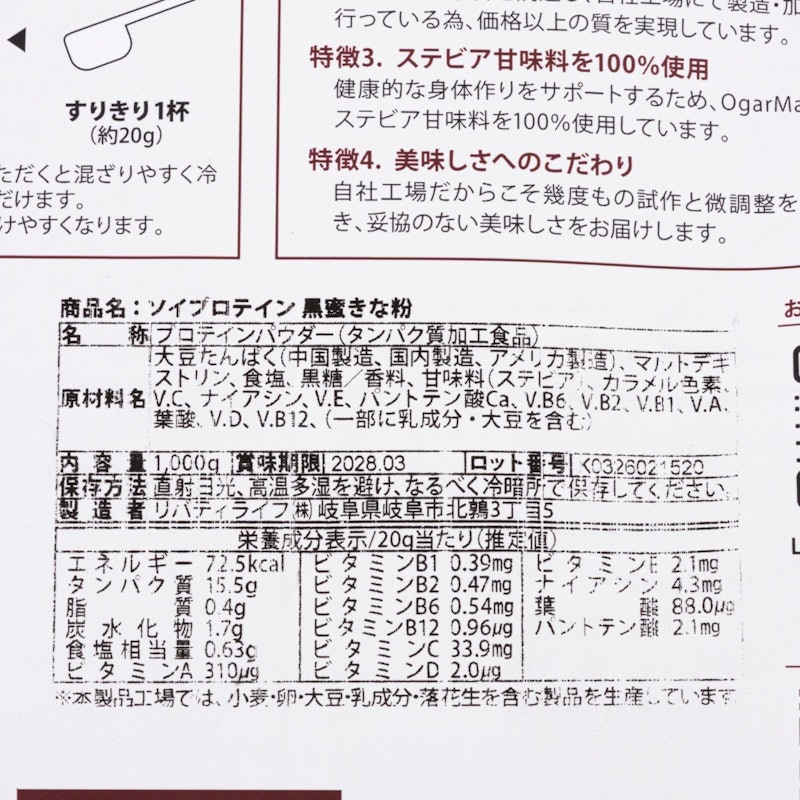 行っている為、価格以上の質を実現しています。
特徴3. ステビア甘味料を100%使用
健康的な身体作りをサポートするため、OgarMa
ステビア甘味料を100%使用しています。
特徴4. 美味しさへのこだわり
自社工場だからこそ幾度もの試作と微調整を
き、妥協のない美味しさをお届けします。
◀
すりきり1杯
(約20g)
ただくと混ざりやすく冷
だけます。
けやすくなります。
お
商品名：ソイプロテイン 黒蜜きな粉
名称 プロテインパウダー(タンパク質加工食品)
原材料名 大豆たんぱく(中国製造、国内製造、アメリカ製造)、マルトデキ
ストリン、食塩、黒糖／香料、甘味料(ステビア)、カラメル色素、
V.C、ナイアシン、V.E、パントテン酸Ca、V.B6、V.B2、V.B1、V.A、
葉酸、V.D、V.B12、(一部に乳成分・大豆を含む)
内容量 1,000g 賞味期限 2028.03 ロット番号 K0326021520
保存方法 直射日光、高温多湿を避け、なるべく冷暗所で保存してください。
製造者 リバティライフ㈱ 岐阜県岐阜市北鶉3丁目5
栄養成分表示/20g当たり(推定値)
エネルギー 72.5kcal ビタミンB1 0.39mg ビタミンE 2.1mg
タンパク質 15.5g ビタミンB2 0.47mg ナイアシン 4.3mg
脂質 0.4g ビタミンB6 0.54mg 葉酸 88.0μg
炭水化物 1.7g ビタミンB12 0.96μg パントテン酸 2.1mg
食塩相当量 0.63g ビタミンC 33.9mg
ビタミンA 310μg ビタミンD 2.0μg
※本製品工場では、小麦・卵・大豆・乳成分・落花生を含む製品を生産しています